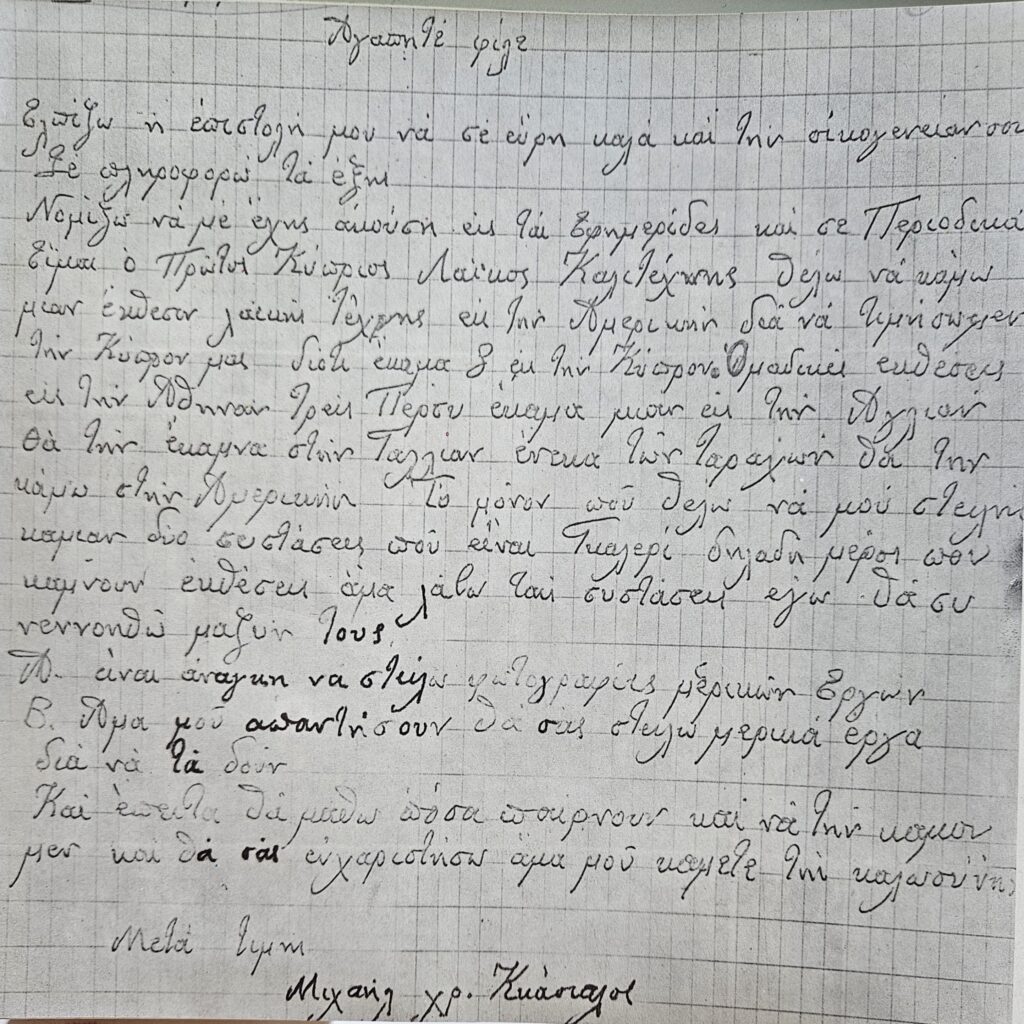 Ἀγαπητέ φίλε
Ἐλπίζω ἡ ἐπιστολή μου νά σέ εὕρη καλά καί τήν οἰκογένειαν σου
Σέ πληροφορῶ τά ἑξῆς
Νομίζω νά μέ ἔχης ἀκούση εἰς τάς Εφημερίδες καί σε Περιοδικά
Εἶμαι ὁ Πρῶτος Κύπριος Λαϊκος Καλιτέχνης θέλω νά κάμω
μιαν ἔκθεσιν λαϊκῆς τέχνης εις τήν Ἀμερικήν διά νά τιμήσωμεν
τήν Κύπρον μας διοτι ἔκαμα 8 εις τήν Κύπρον. Ομαδικές εκθέσεις
εἰς τήν Ἀθῆναν τρεῖς Πέρσυ ἔκαμα μιαν εἰς τήν Ἀγγλιαν
Θά τήν ἔκαμνα στήν Γαλλίαν ἕνεκα τῶν ταραχῶν θά την
κάμω στήν Ἀμερικήν Τό μόνον πού θέλω νά μοῦ στείλης
καμιαν δύο συστάσεις πού εἶναι Γκαλερί δηλαδή μέρος που
κάμνουν ἐκθέσεις ἅμα λάβω τάς συστάσεις εγω θά συ
νεννοηθῶ μαζύν τους
Α. εἶναι ἀνάγκη να στείλω φωτογραφίες μερικῶν Εργων
Β. Ἅμα μοῦ απαντήσουν θά σάς στείλω μερικά ἔργα
διά νά τά δοῦν
Καί ἔπειτα θά μάθω πόσα παίρνουν καί νά τήν καμου
μεν και θά σας εὐχαριστήσω ἅμα μοῦ κάμετε τήν καλωσύνην
Μετά τιμης
Μιχαήλ χρ. Κκάσιαλος